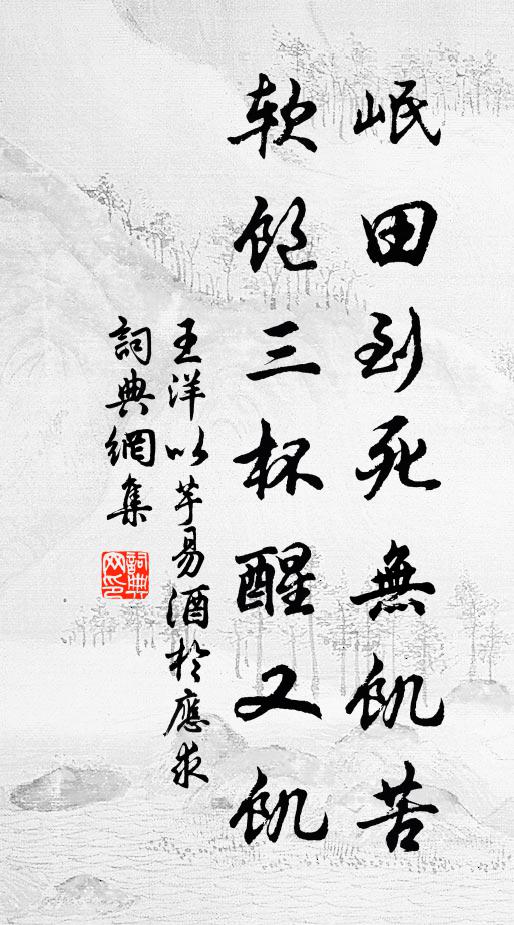 岷田到死無飢苦
軟飽三杯醒又飢
王洋以芋易酒於應求
詞典網集
詞典網印